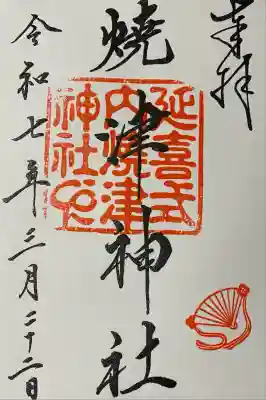 奉拝
燒津神社
延喜式
内焼津
神社印
令和七年三月二十二日